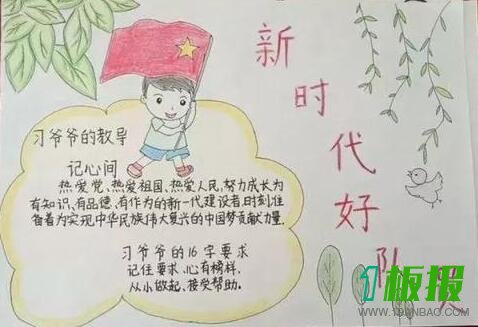 新时代好队
习爷爷的教导
记心间
热爱党、热爱祖国、热爱人民,努力成长为
有知识、有品德、有作为的新一代建设者,时刻准
备着为实现中华民族伟大复兴的中国梦贡献力量.
习爷爷的16字要求
记住要求、心有榜样,
从小做起、接受帮助.
板报
WWW.1BANBAO.COM